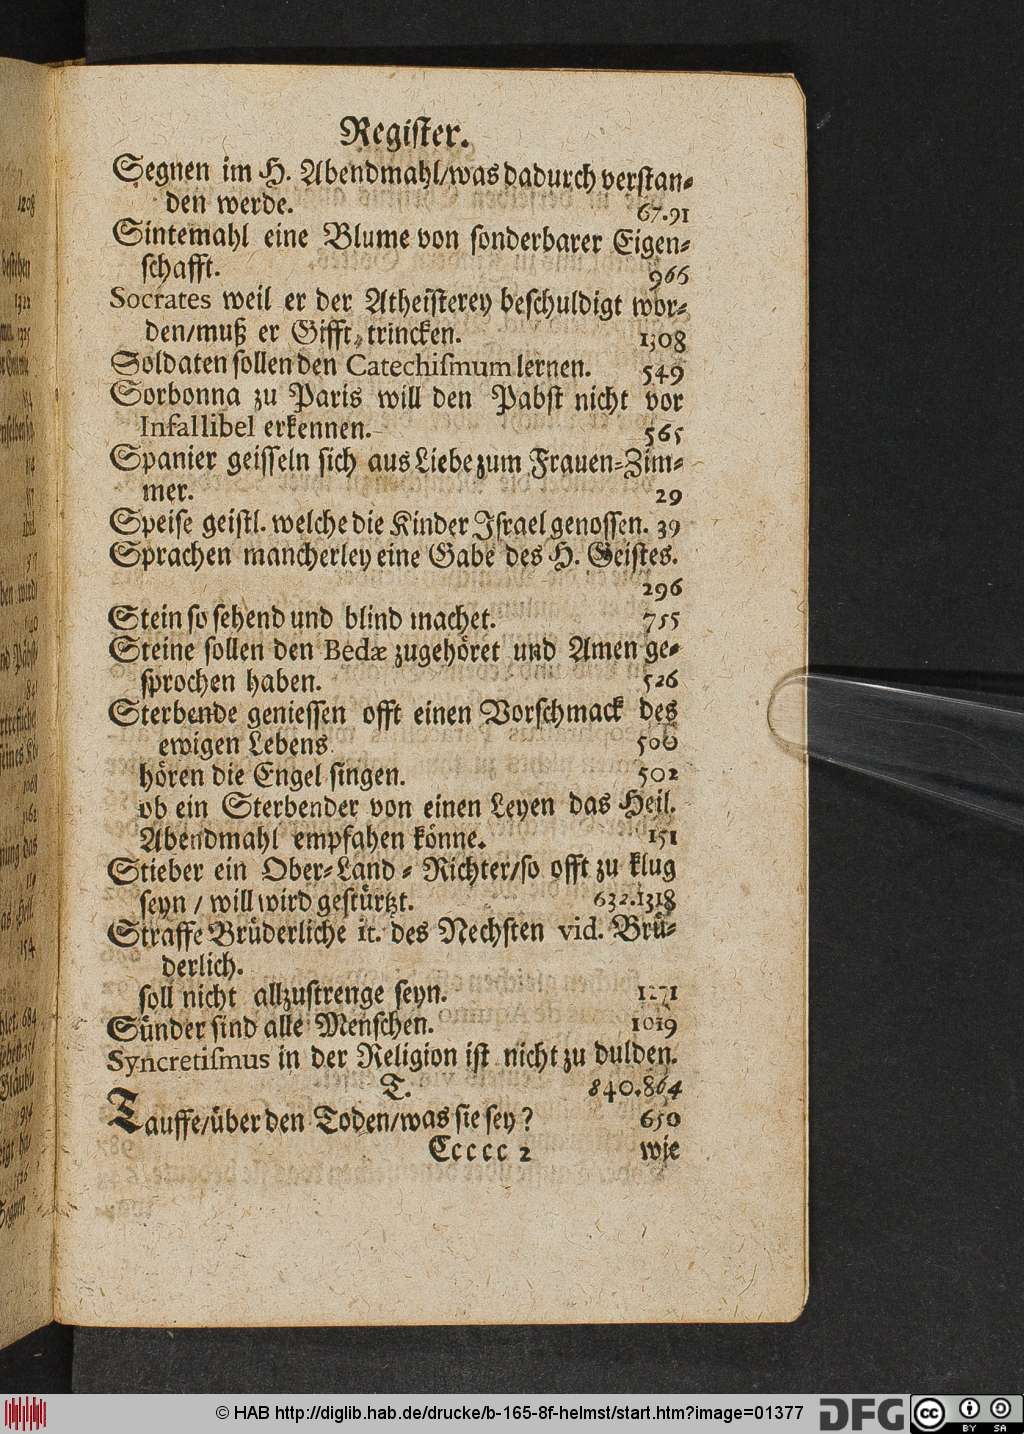 Register.
Segnen im H. Abendmahl/was dadurch verstan⸗
den werde. 67.91
Sintemahl eine Blume von sonderbarer Eigen⸗
schafft. 966
Socrates weil er der Atheisterey beschuldigt wor⸗
den/muß er Gifft trincken. 1308
Soldaten sollen den Catechiſmum lernen. 549
Sorbonna zu Paris will den Pabst nicht vor
Infallibel erkennen. 565
Spanier geisseln sich aus Liebe zum Frauen⸗Zim⸗
mer. 29
Speise geistl. welche die Kinder Israel genossen. 39
Sprachen mancherley eine Gabe des H. Geistes.
296
Stein so sehend und blind machet. 755
Steine sollen den Bedæ zugehöret und Amen ge⸗
sprochen haben. 526
Sterbende geniessen offt einen Vorschmack des
ewigen Lebens 500
hören die Engel singen. 502
ob ein Sterbender von einen Leyen das Heil.
Abendmahl empfahen könne. 151
Stieber ein Ober⸗Land⸗Richter/so offt zu klug
seyn / will wird gestürtzt. 632.1318
Straffe Brüderliche it. des Nechsten vid. Brü⸗
derlich.
soll nicht allzustrenge seyn. 1271
Sünder sind alle Menschen. 1019
Syncretiſmus in der Religion ist nicht zu dulden.
T. 840.864
Tauffe/über den Toden/was sie sey? 650
Ccccc 2 wie
© HAB http://diglib.hab.de/drucke/b-165-8f-helmst/start.htm?image=01377
DFG
cc BY SA